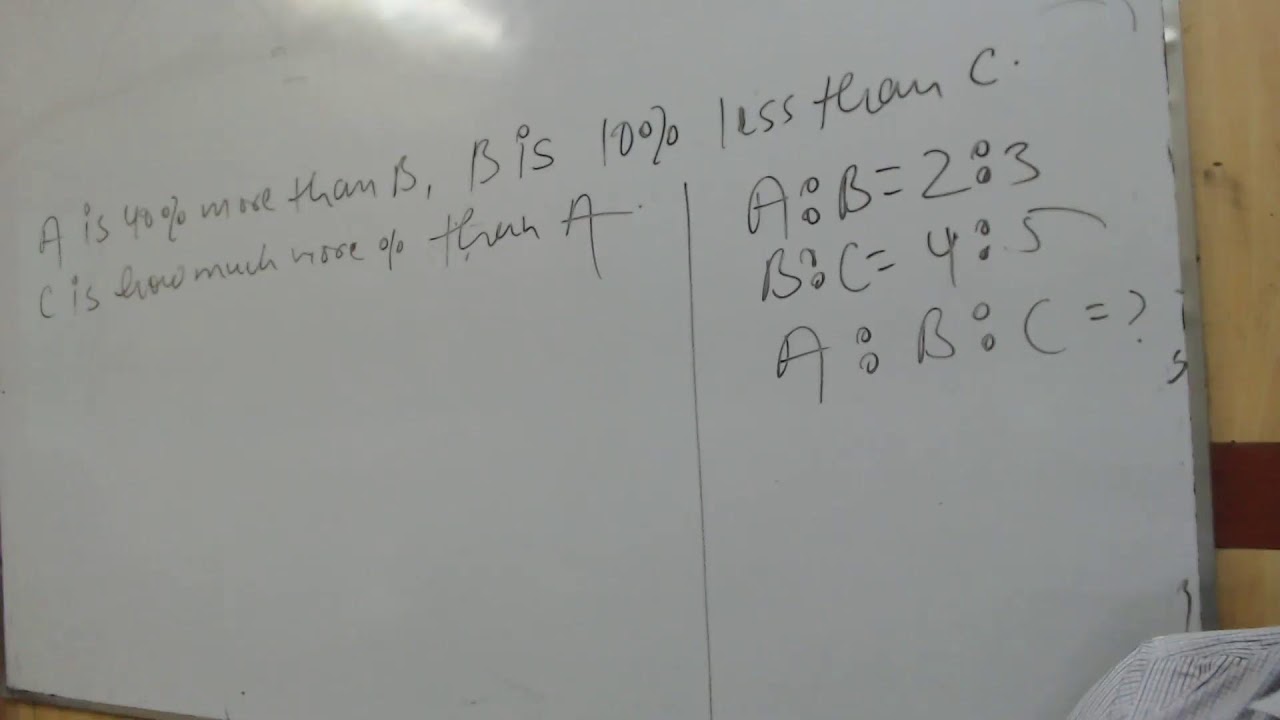 A is 40% more than B, B is 10% less than C.
C is how much more % than A.
A : B = 2 : 3
B : C = 4 : 5
A : B : C = ?